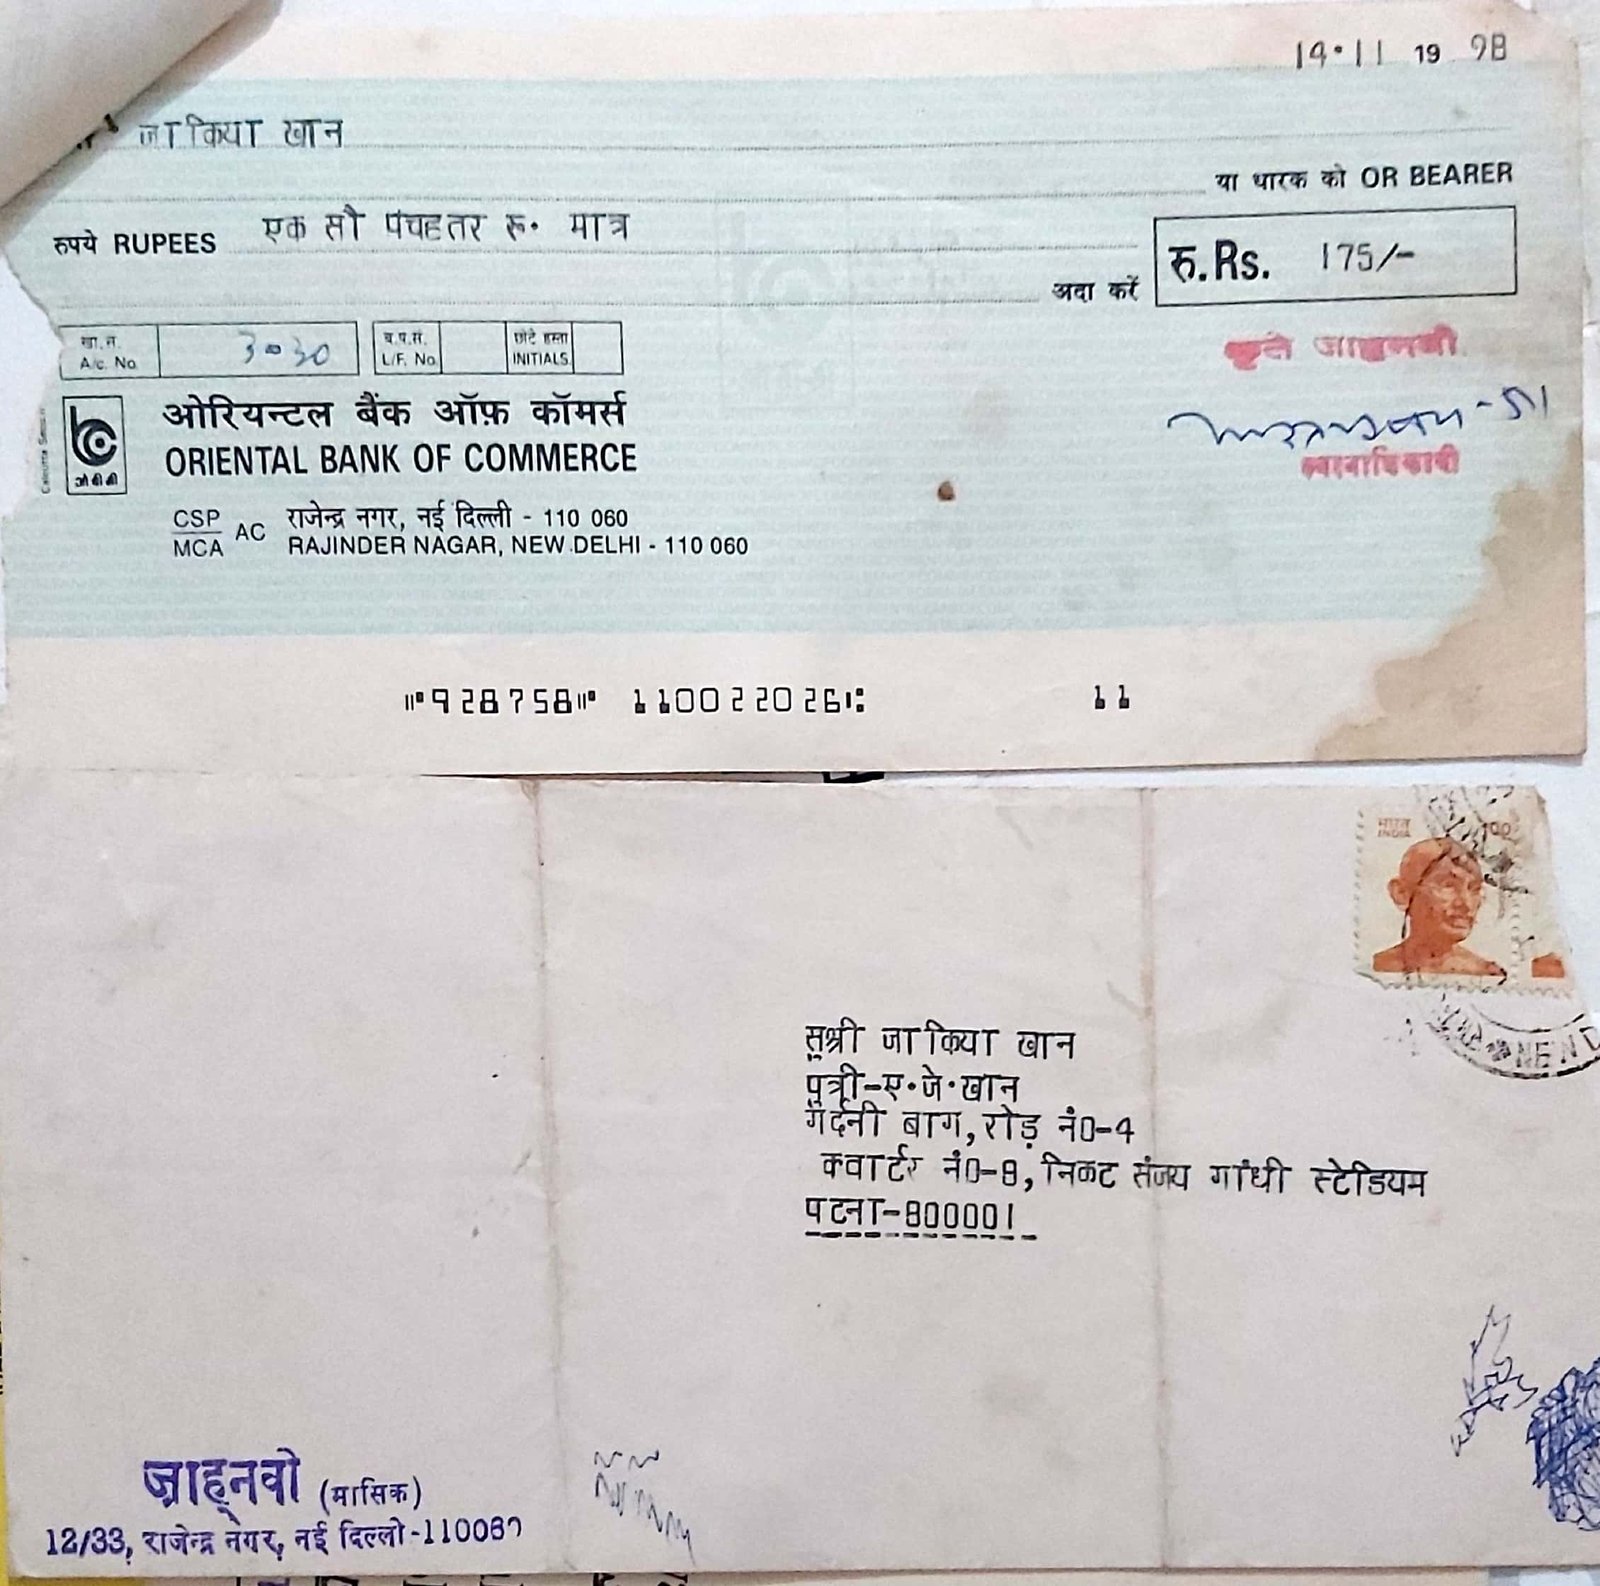 14·11 19 98
जाकिया खान
या धारक को OR BEARER
रुपये RUPEES एक सौ पंचहतर रु· मात्र
अदा करें
रु.Rs. 175/-
खा.न.
A/c. No.
ब.प.सं.
L/F. No.
छोटे हस्ता
INITIALS
ओ बी सी
ओरियन्टल बैंक ऑफ़ कॉमर्स
ORIENTAL BANK OF COMMERCE
CSP
MCA AC
राजेन्द्र नगर, नई दिल्ली - 110 060
RAJINDER NAGAR, NEW DELHI - 110 060
कृते जाह्नवी
928758 110022026 11
भारत
INDIA
100
NEW D
सुश्री जाकिया खान
पुत्री-ए·जे·खान
गर्दनी बाग, रोड़ नं0-4
क्वार्टर नं0-8, निकट संजय गांधी स्टेडियम
पटना-800001
जाह्नवी (मासिक)
12/33, राजेन्द्र नगर, नई दिल्ली-110060